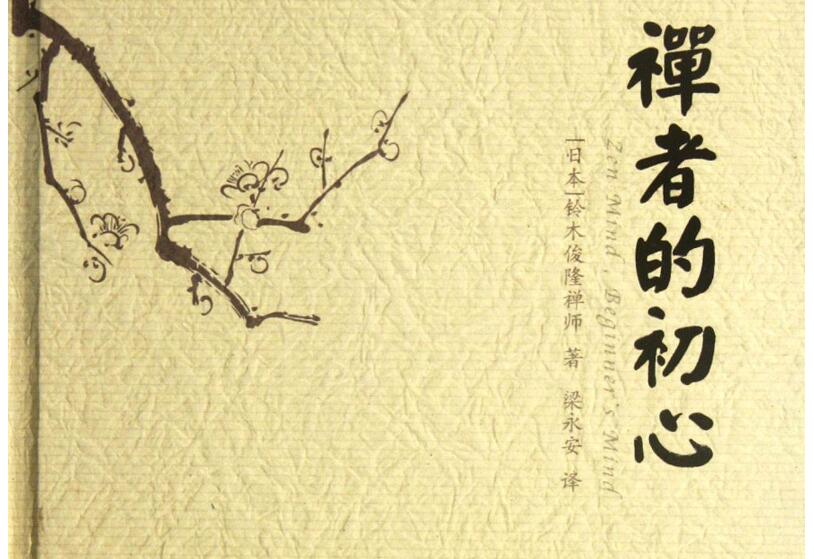 禪者的初心
Zen Mind, Beginner's Mind
|日本|铃木俊隆禅师 著 梁永安 译